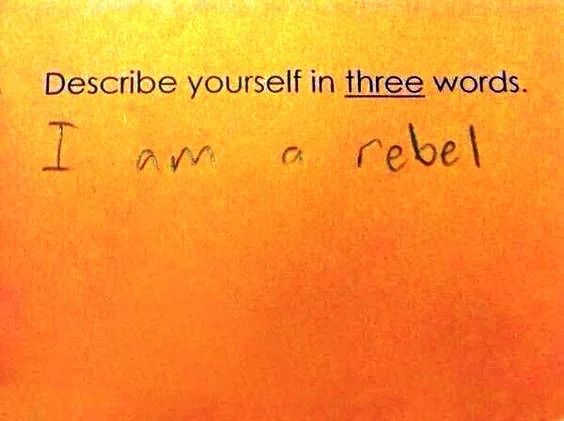 Describe yourself in three words.
I am a rebel